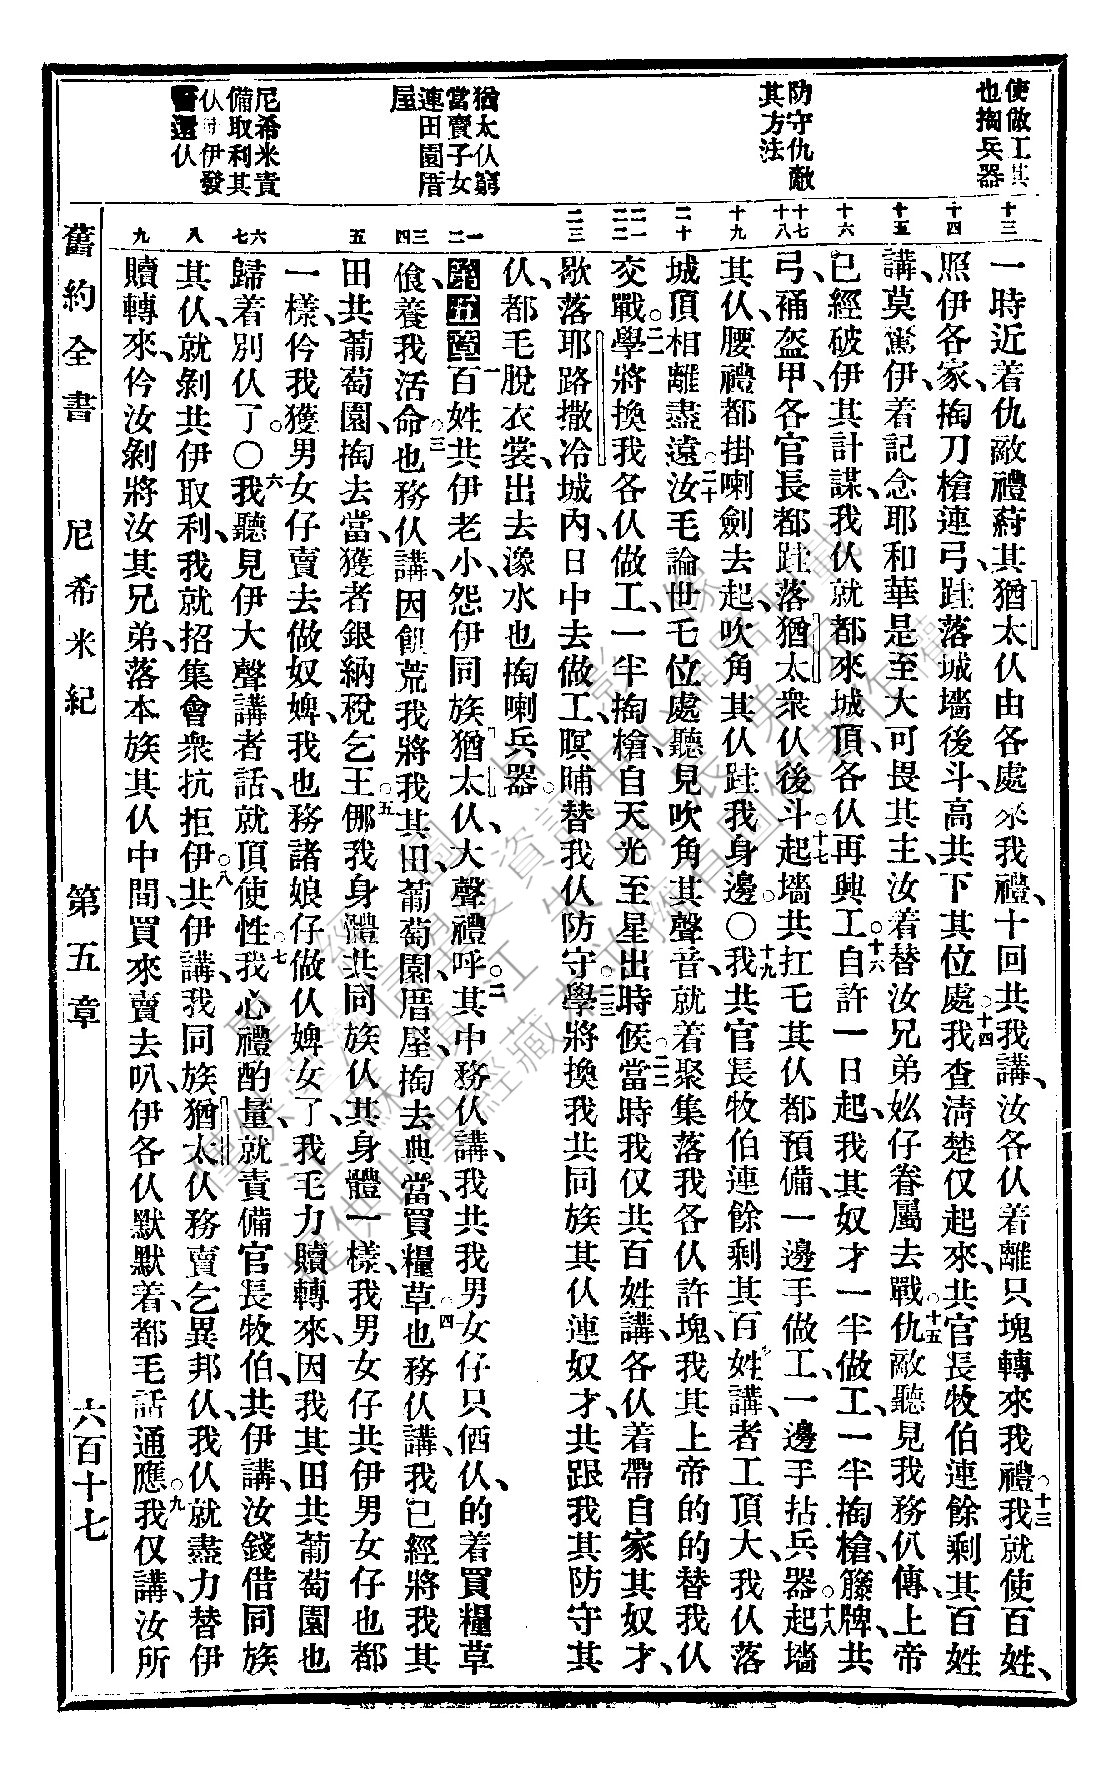 使做工其
也掏兵器
防守仇敵
其方法
猶太仈窮
當賣子女
連田園厝
屋
尼希米責
備取利其
仈伊發
還仈
十三
十四
十五
十六
十七
十八
十九
二十
二一
二二
二三
一
二
三
四
五
六
七
八
九
一時近着仇敵禮葤其猶太仈由各處來我禮、十回共我講、汝各仈着離只塊轉來我禮。十三我就使百姓、
照伊各家、掏刀槍連弓、跬落城墻後斗、高共下其位處。十四我查淸楚仅起來、共官長牧伯連餘剩其百姓
講、莫驚伊、着記念耶和華是至大可畏其主、汝着替汝兄弟、妐仔眷屬去戰。十五仇敵聽見我務仈傳、上帝
已經破伊其計謀、我仈就都來城頂、各仈再興工。十六自許一日起、我其奴才一半做工、一半掏槍籐牌共
弓、裲盔甲、各官長都跬落猶太衆仈後斗。十七起墻共扛乇其仈都預備、一邊手做工、一邊手拈兵器。十八起墻
其仈、腰禮都掛喇劍去起、吹角其仈跬我身邊。〇十九我共官長牧伯連餘剩其百姓講、者工頂大、我仈落
城頂相離盡遠。二十汝毛論世乇位處、聽見吹角其聲音、就着聚集落我各仈許塊、我其上帝的的替我仈
交戰。二一學將換我各仈做工、一半掏槍、自天光至星出時候。二二當時我仅共百姓講、各仈着帶自家其奴才、
歇落耶路撒冷城內、日中去做工、暝晡替我仈防守。二三學將換我共同族其仈連奴才、共跟我其防守其
仈、都毛脫衣裳、出去潒水也掏喇兵器。
第五章一百姓共伊老小、怨伊同族猶太仈、大聲禮呼。二其中務仈講、我共我男女仔只価仈、的着買糧草
飧養我活命。三也務仈講、因饑荒我將我其田、葡萄園、厝屋、掏去典當、買糧草。四也務仈講、我已經將我其
田共葡萄園、掏去當、獲者銀納稅乞王。五㑚我身體共同族仈其身體一樣、我男女仔共伊男女仔也都
一樣、仱我獲男女仔賣去做奴婢、我也務諸娘仔做仈婢女了、我毛力贖轉來、因我其田共葡萄園也
歸着別仈了。〇六我聽見伊大聲講者話、就頂使性。七我心禮酌量、就責備官長牧伯、共伊講、汝錢借同族
其仈、就剝共伊取利、我就招集會衆抗拒伊。八共伊講、我同族猶太仈務賣乞異邦仈、我仈就盡力替伊
贖轉來、仱汝剝將汝其兄弟、落本族其仈中間、買來賣去叭、伊各仈默默着、都毛話通應。九我仅講、汝所
舊約全書　尼希米紀　第五章　六百十七